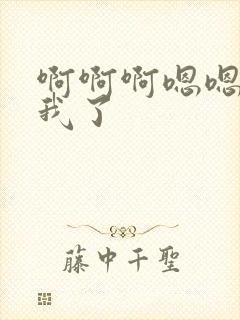 啊啊啊嗯嗯
我了
藤中千聖